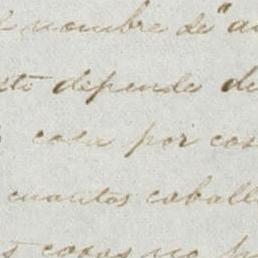 nombre de "a
depende de
casa por cos
cuantos caball
cosas no p